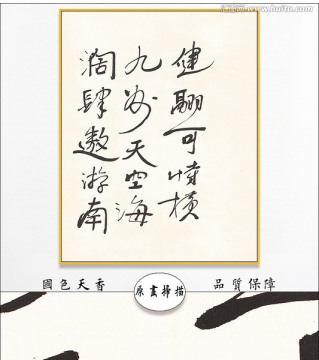 汇图网 www.huitu.com
健翮可恃横
九州天空海
濶肆遨游南
國色天香
原畫掃描
品質保障